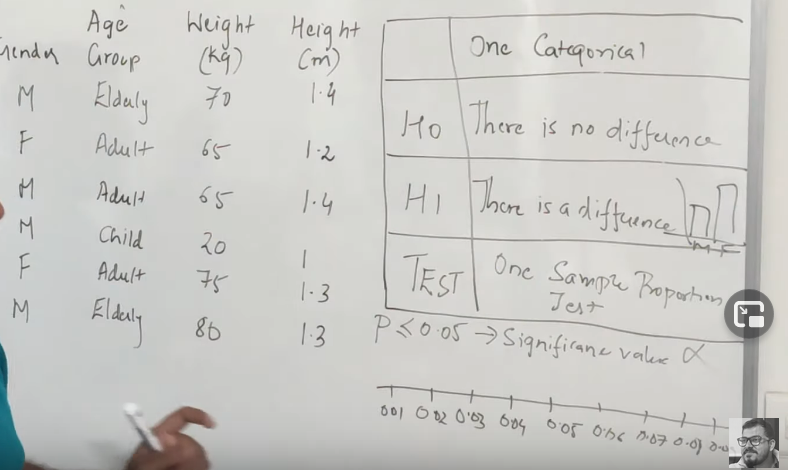 Age Weight Height
Gender Group (kg) (m)
M Eldaly 70 1.4
F Adult 65 1.2
M Adult 65 1.4
M Child 20 1
F Adult 75 1.3
M Eldaly 80 1.3
One Categorical
H0 There is no difference
H1 There is a difference
M F
TEST One Sample Proportion
Test
P ≤ 0.05 → Significane value α
0.01 0.02 0.03 0.04 0.05 0.06 0.07